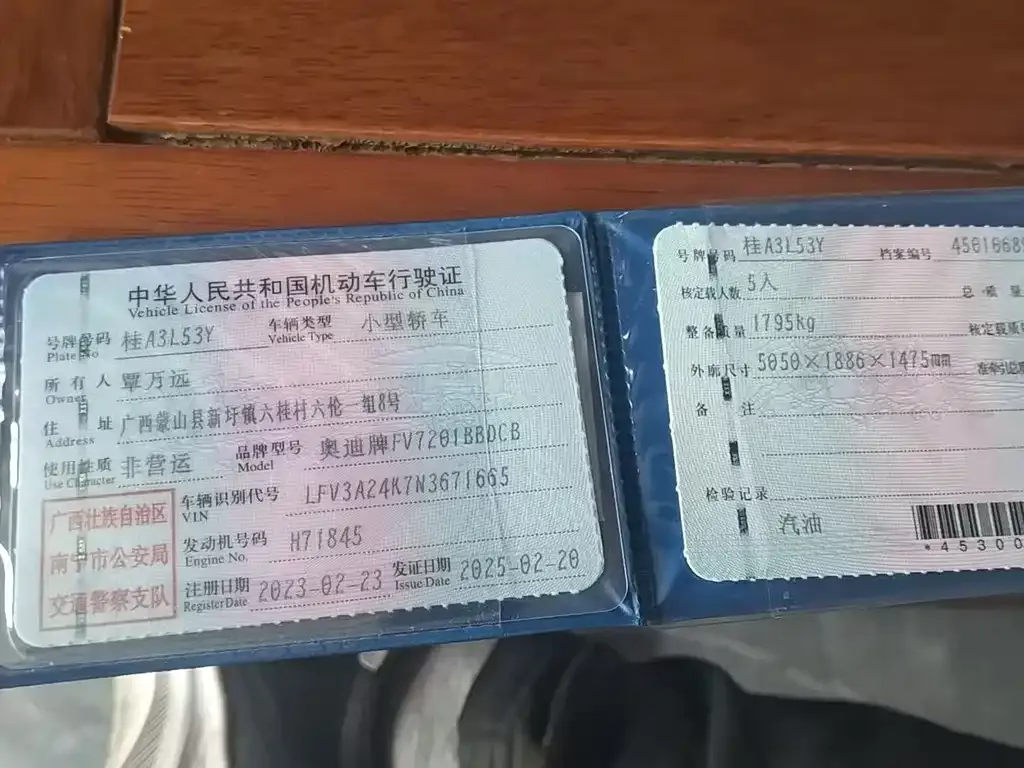 中华人民共和国机动车行驶证
Vehicle License of the People's Republic of China
号牌号码 桂A3L53Y 车辆类型 小型轿车
Plate No Vehicle Type
所有人 覃万远
Owner
住址 广西蒙山县新圩镇六桂村六伦一组8号
Address
使用性质 非营运 品牌型号 奥迪牌FV7201BBDCB
Use Character Model
车辆识别代号 LFV3A24K7N3671665
VIN
发动机号码 H71845
Engine No.
注册日期 2023-02-23 发证日期 2025-02-20
Register Date Issue Date
广西壮族自治区
南宁市公安局
交通警察支队
号牌号码 桂A3L53Y 档案编号 4501068
核定载人数 5人 总质量
整备质量 1795kg 核定载质
外廓尺寸 5050×1886×1475mm 准牵引总
备注
检验记录
汽油
*45300